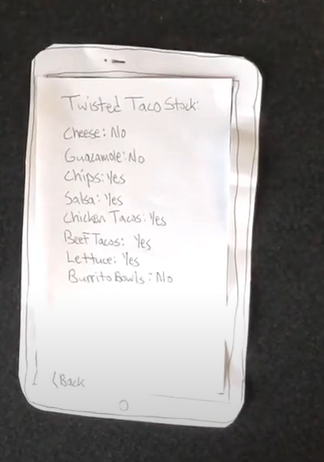 Twisted Taco Stock:
Cheese: No
Guacamole: No
Chips: Yes
Salsa: Yes
Chicken Tacos: Yes
Beef Tacos: Yes
Lettuce: Yes
Burrito Bowls: No
<Back